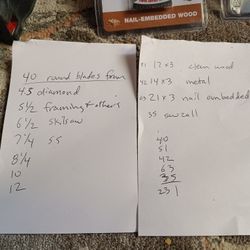 NAIL-EMBEDDED WOOD
40 round blades from
4.5 diamond
5 1/2 framing + others
6 1/2 skilsaw
7 1/4 SS
8 1/4
10
12
12 x 3 clean wood
14 x 3 metal
21 x 3 nail embedded
35 sawzall
40
51
42
63
35
231